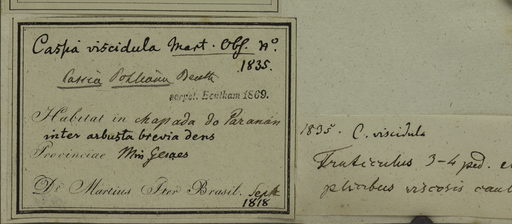 Cassia viscidula Mart. Obs. No.
1835.
Cassia Pohliana Benth
scrpst. Bentham 1869.
Habitat in chapada do Paranán
inter arbusta brevia dens
Provinciae Min Geraes
Dr. Martius Iter Brasil. Septb
1818
1835. C. viscidula
Fruticulus 3-4 ped. e
plicibus viscosis caul